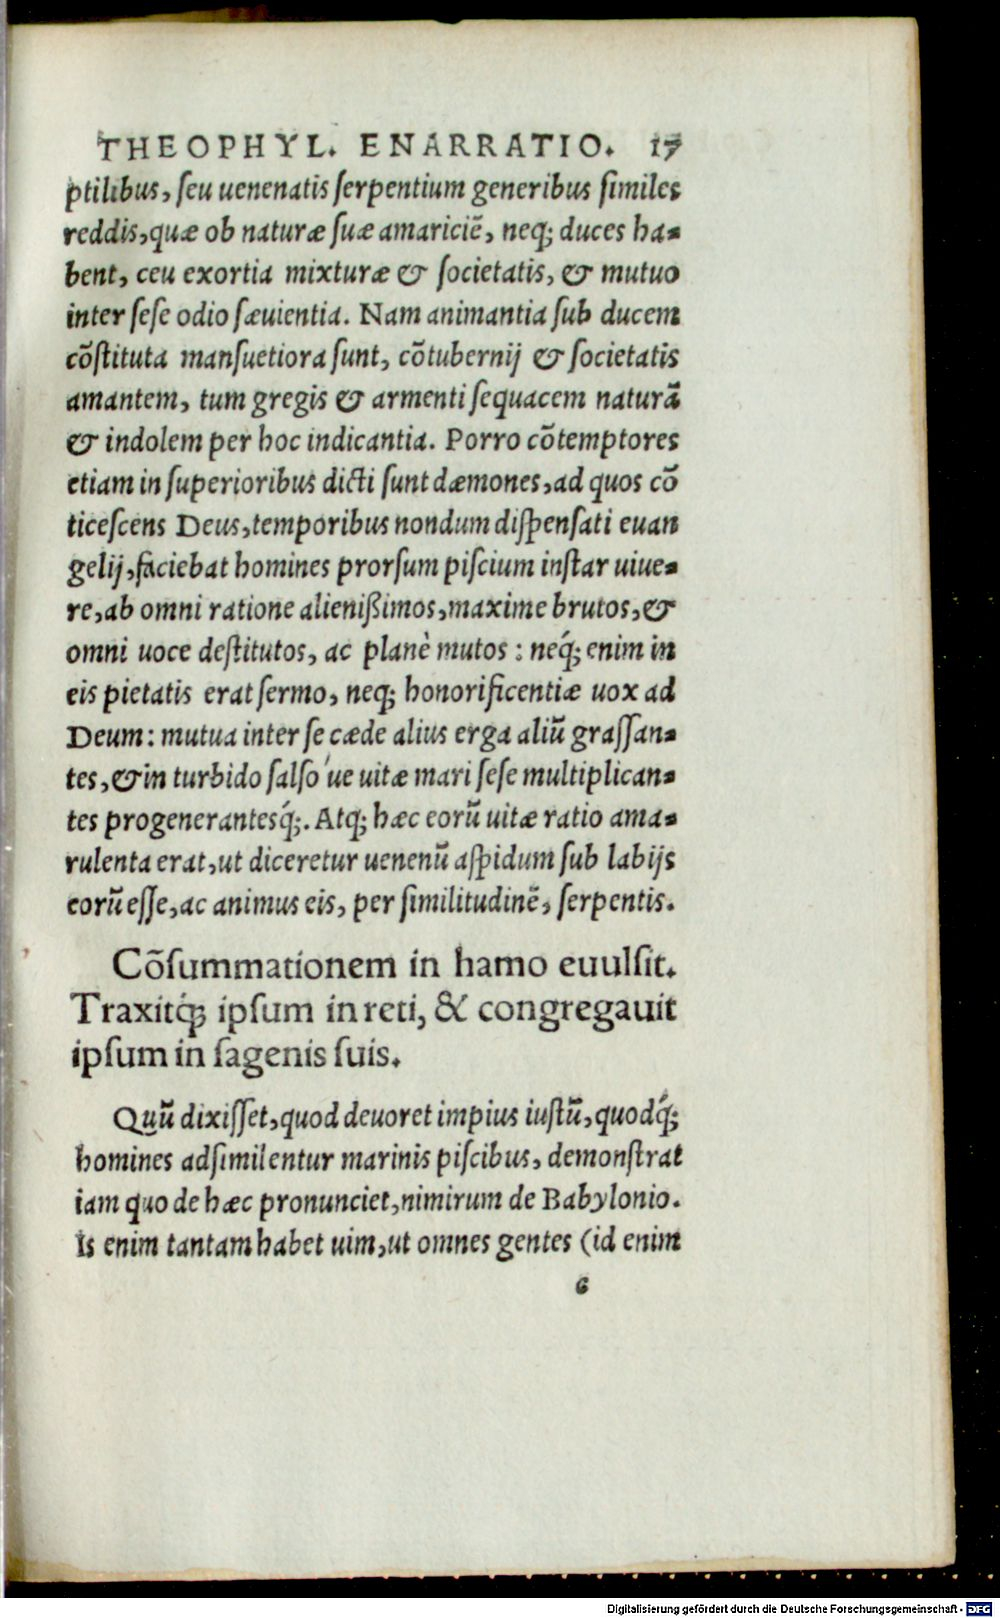 THEOPHYL. ENARRATIO. 17
ptilibus, ſeu uenenatis ſerpentium generibus ſimiles
reddis, quæ ob naturæ ſuæ amariciẽ, neq; duces ha-
bent, ceu exortia mixturæ & ſocietatis, & mutuo
inter ſeſe odio ſæuientia. Nam animantia ſub ducem
cõſtituta manſuetiora ſunt, cõtubernij & ſocietatis
amantem, tum gregis & armenti ſequacem naturã
& indolem per hoc indicantia. Porro cõtemptores
etiam in ſuperioribus dicti ſunt dæmones, ad quos cõ
ticeſcens Deus, temporibus nondum diſpenſati euan
gelij, faciebat homines prorſum piſcium inſtar uiue-
re, ab omni ratione alienißimos, maxime brutos, &
omni uoce deſtitutos, ac planè mutos : neq́; enim in
eis pietatis erat ſermo, neq; honorificentiæ uox ad
Deum : mutua inter ſe cæde alius erga aliũ graſſan-
tes, & in turbido ſalſo ́ue uitæ mari ſeſe multiplican-
tes progenerantesq́;. Atq; hæc eorũ uitæ ratio ama-
rulenta erat, ut diceretur uenenũ aſpidum ſub labijs
eorũ eſſe, ac animus eis, per ſimilitudinẽ, ſerpentis.
Cõſummationem in hamo euulſit.
Traxitq́; ipſum in reti, & congregauit
ipſum in ſagenis ſuis.
Quũ dixiſſet, quod deuoret impius iuſtũ, quodq́;
homines adſimilentur marinis piſcibus, demonſtrat
iam quo de hæc pronunciet, nimirum de Babylonio.
Is enim tantam habet uim, ut omnes gentes (id enim
c
Digitalisierung gefördert durch die Deutsche Forschungsgemeinschaft - DFG